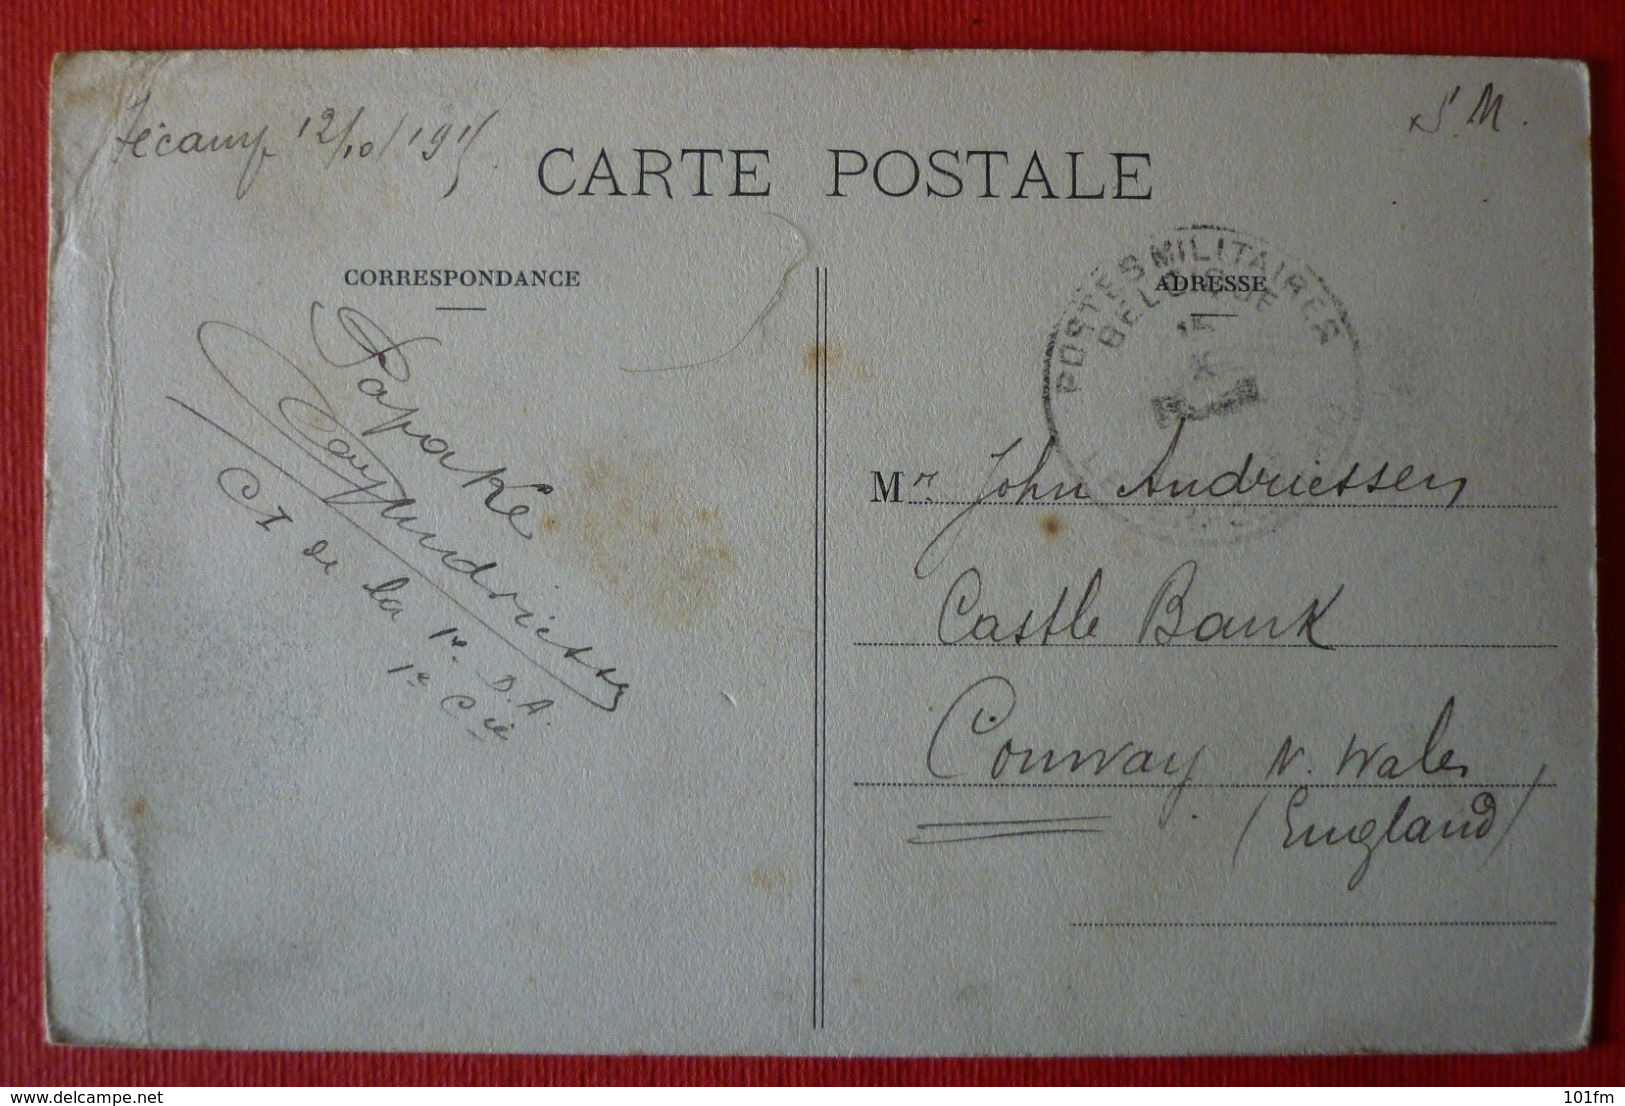 Fécamp 12/10/1915
S.M.
CARTE POSTALE
CORRESPONDANCE
ADRESSE
POSTES MILITAIRES
BELGIQUE
15
X
Papake
Andriessen
C I de la 1e D.A.
1e Cie
Mr. John Andriessen
Castle Bank
Conway N. Wales
(England)
delcampe.net
101fm